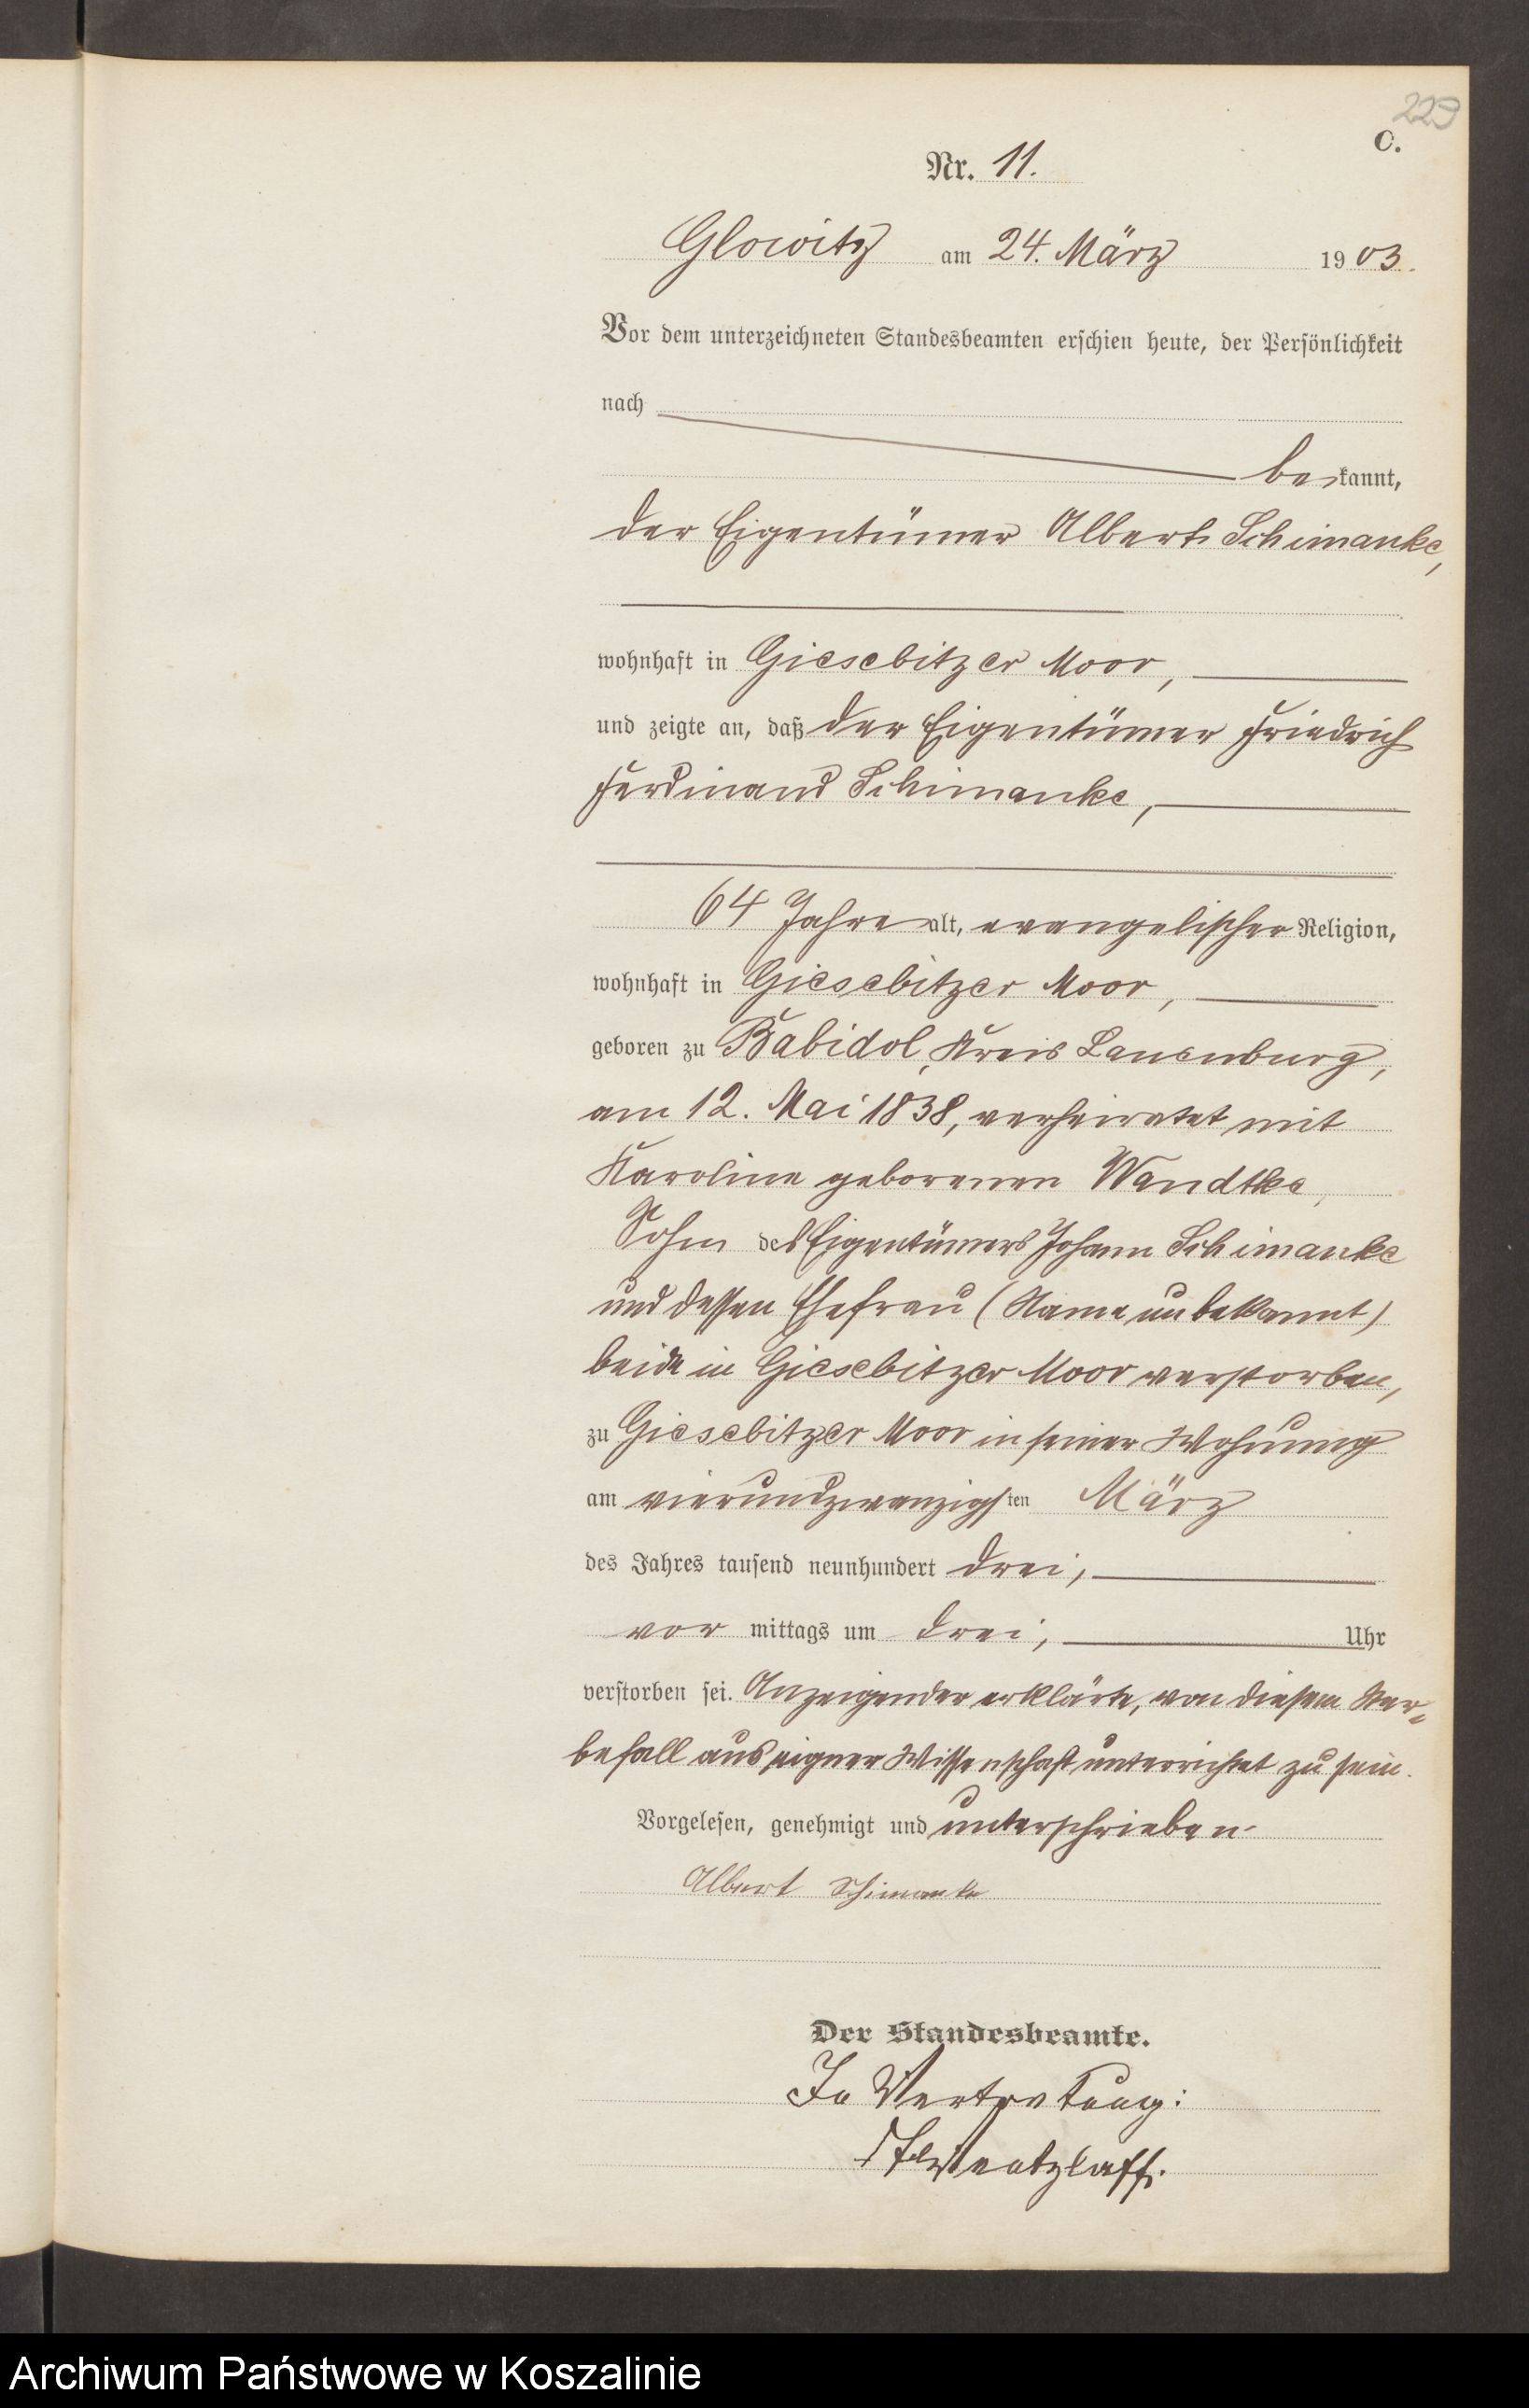 229
C.
Nr. 11.
Glowitz am 24. März 1903.
Vor dem unterzeichneten Standesbeamten erschien heute, der Persönlichkeit
nach
bekannt,
der Eigentümer Albert Schimanke,
wohnhaft in Giesebitzer Moor,
und zeigte an, daß der Eigentümer Friedrich
Ferdinand Schimanke,
64 Jahre alt, evangelischer Religion,
wohnhaft in Giesebitzer Moor,
geboren zu Babidol, Kreis Lauenburg,
am 12. Mai 1838, verheiratet mit
Karoline geborenen Wandtke,
Sohn des Eigentümers Johann Schimanke
und dessen Ehefrau (Name unbekannt)
beide in Giesebitzer Moor verstorben,
zu Giesebitzer Moor in seiner Wohnung
am vierundzwanzigsten März
des Jahres tausend neunhundert drei,
vor mittags um drei, Uhr
verstorben sei. Anzeigender erklärte, von diesem Ster-
befall aus eigner Wissenschaft unterrichtet zu sein.
Vorgelesen, genehmigt und unterschrieben.
Albert Schimanke
Der Standesbeamte.
In Vertretung:
Wentzlaff.
Archiwum Państwowe w Koszalinie